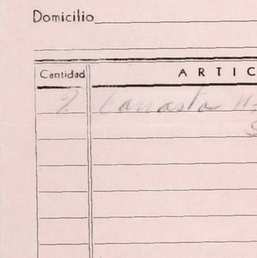 Domicilio
Cantidad ARTIC
2 Canasta N